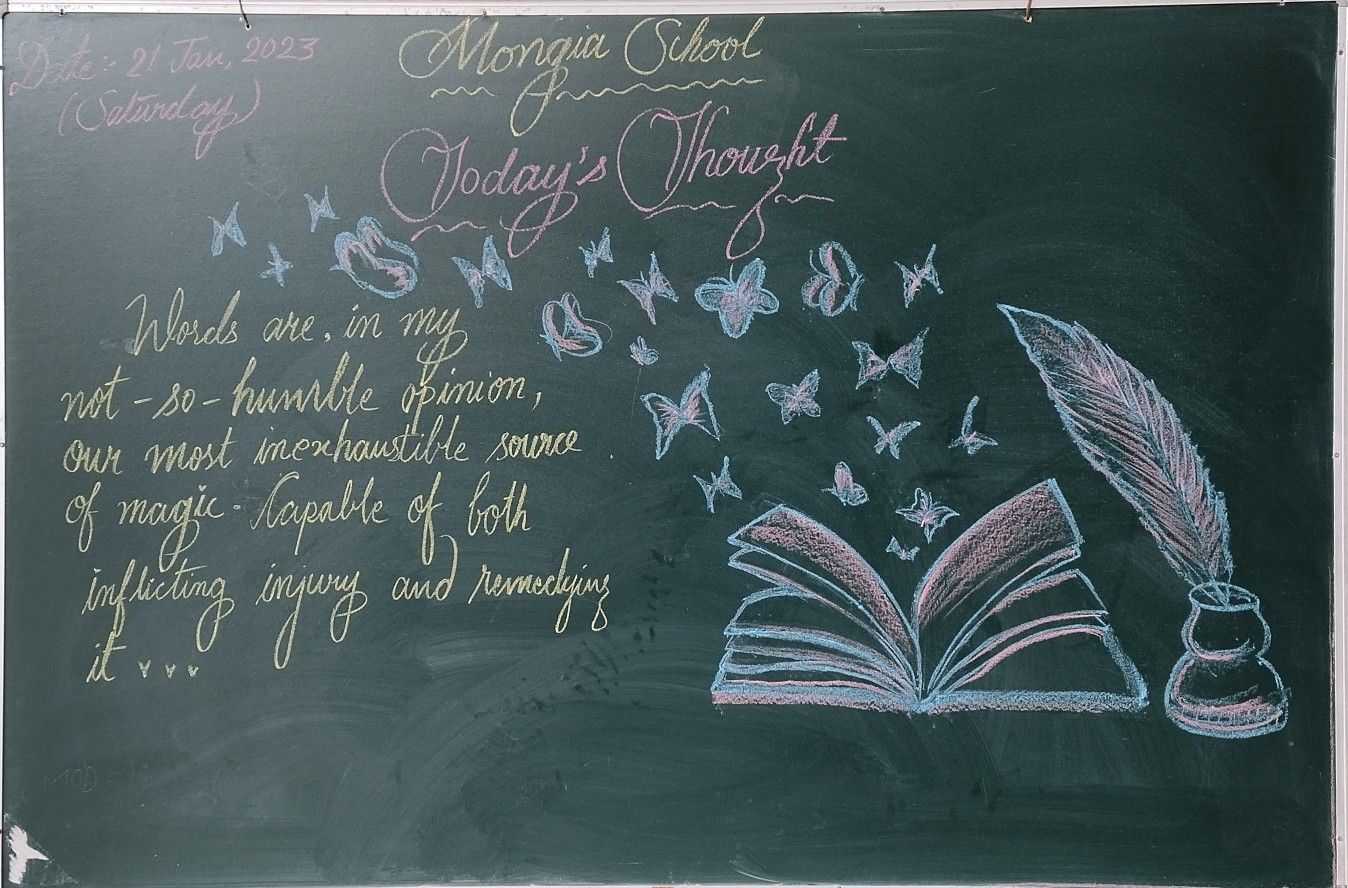 Date:- 21 Jan, 2023
(Saturday)
Mongia School
Today's Thought
Words are, in my
not-so-humble opinion,
our most inexhaustible source
of magic. Capable of both
inflicting injury and remedying
it ...